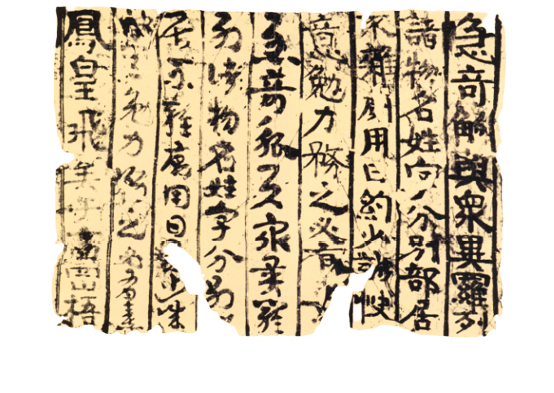 急奇觚與衆異羅列
諸物名姓字分別部居
不雜廁用日約少誠快
意勉力務之必有
急奇觚與衆異羅
列諸物名姓字分別
居不雜廁用日
勉力務之必有憙
鳳皇飛